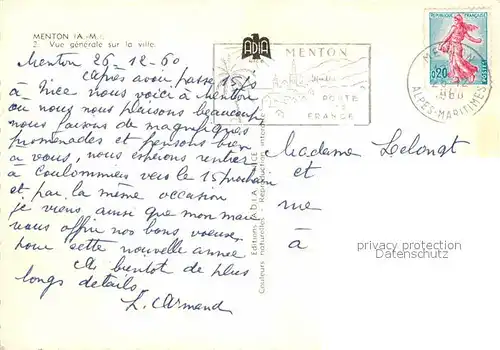 MENTON (A.-M.)
2. Vue générale sur la ville.
Menton 26-12-60
Après avoir passé 15 js
à Nice nous voici à Menton
ou nous nous plaisons beaucoup
nous faisons de magnifiques
promenades et pensons bien
a vous, nous espérons rentrer
à Coulommiers vers le 15 prochain
et par la même occasion
je viens ainsi que mon mari
vous offrir nos bons voeux
pour cette nouvelle année
A bientôt de plus
longs détails.
L. Armand
Editions ADIA NICE
Couleurs naturelles - Reproduction interdite
ADIA
NICE
MENTON
PORTE
DE
FRANCE
REPUBLIQUE FRANÇAISE
0,20
POSTES
MENTON
1960
ALPES-MARITIMES
Madame Lelongt
et
rue
à
privacy protection
Datenschutz